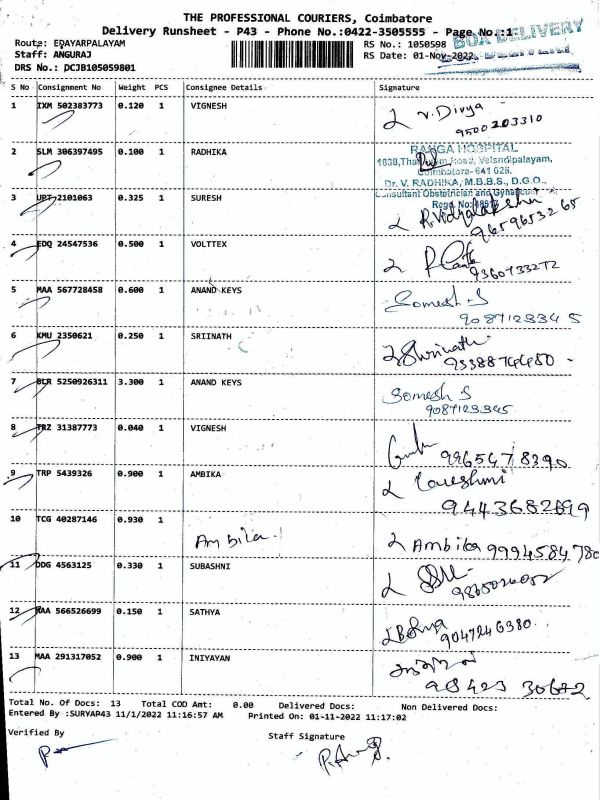 THE PROFESSIONAL COURIERS, Coimbatore
Delivery Runsheet - P43 - Phone No.:0422-3505555 - Page No.:1
BOX DELIVERY
Route: EDAYARPALAYAM
RS No.: 1050598
Staff: ANGURAJ
RS Date: 01-Nov-2022
DRS No.: DCJB105059801
S No Consignment No Weight PCS Consignee Details Signature
1 IXM 502383773 0.120 1 VIGNESH V. Divya
9500203310
2 SLM 306397495 0.100 1 RADHIKA
RANGA HOSPITAL
Road, Velandipalayam,
Coimbatore- 641 025.
Dr. V. RADHIKA, M.B.B.S., D.G.O.,
Consultant Obstetrician and
Regd. No:
3 UPT 2101063 0.325 1 SURESH R. Vidyalakshmi
9659653265
4 EDQ 24547536 0.500 1 VOLTTEX
9360733272
5 MAA 567728458 0.600 1 ANAND KEYS Somesh S
9087123345
6 KMU 2350621 0.250 1 SRIINATH Shrinath
9338874480
7 BLR 5250926311 3.300 1 ANAND KEYS Somesh S
9087123345
8 TRZ 31387773 0.040 1 VIGNESH
9965478390
9 TRP 5439326 0.900 1 AMBIKA
9443682699
10 TCG 40287146 0.930 1 Ambika Ambika 9994584780
11 DDG 4563125 0.330 1 SUBASHNI
12 MAA 566526699 0.150 1 SATHYA
9047246380
13 MAA 291317052 0.900 1 INIYAYAN
98423 30682
Total No. Of Docs: 13 Total COD Amt: 0.00 Delivered Docs: Non Delivered Docs:
Entered By :SURYAP43 11/1/2022 11:16:57 AM Printed On: 01-11-2022 11:17:02
Verified By Staff Signature